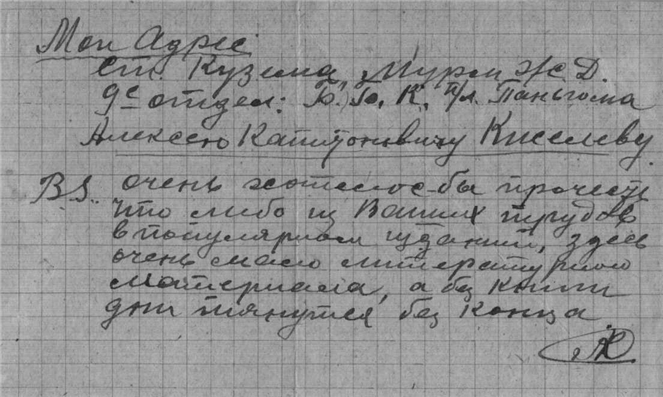 Мой Адрес
ст. Кузема, Мурм Ж.Д.
9е отдел: Б. Б. К. п/л. Паньгома
Алексею Капитоновичу Киселеву.
PS. очень хотелос-бы прочесть
что либо из Ваших трудов
в популярном издании, здесь
очень мало литературного
материала, а без книги
дни тянутся без конца
АК